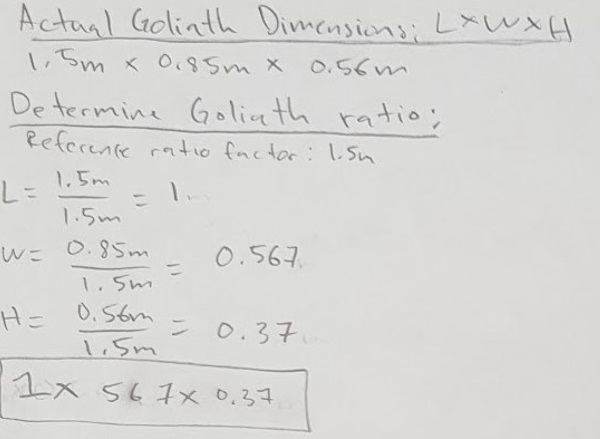 Actual Goliath Dimensions: L×W×H
1.5m × 0.85m × 0.56m
Determine Goliath ratio:
Reference ratio factor: 1.5m
L = 1.5m / 1.5m = 1
W = 0.85m / 1.5m = 0.567
H = 0.56m / 1.5m = 0.37
1 × 567 × 0.37